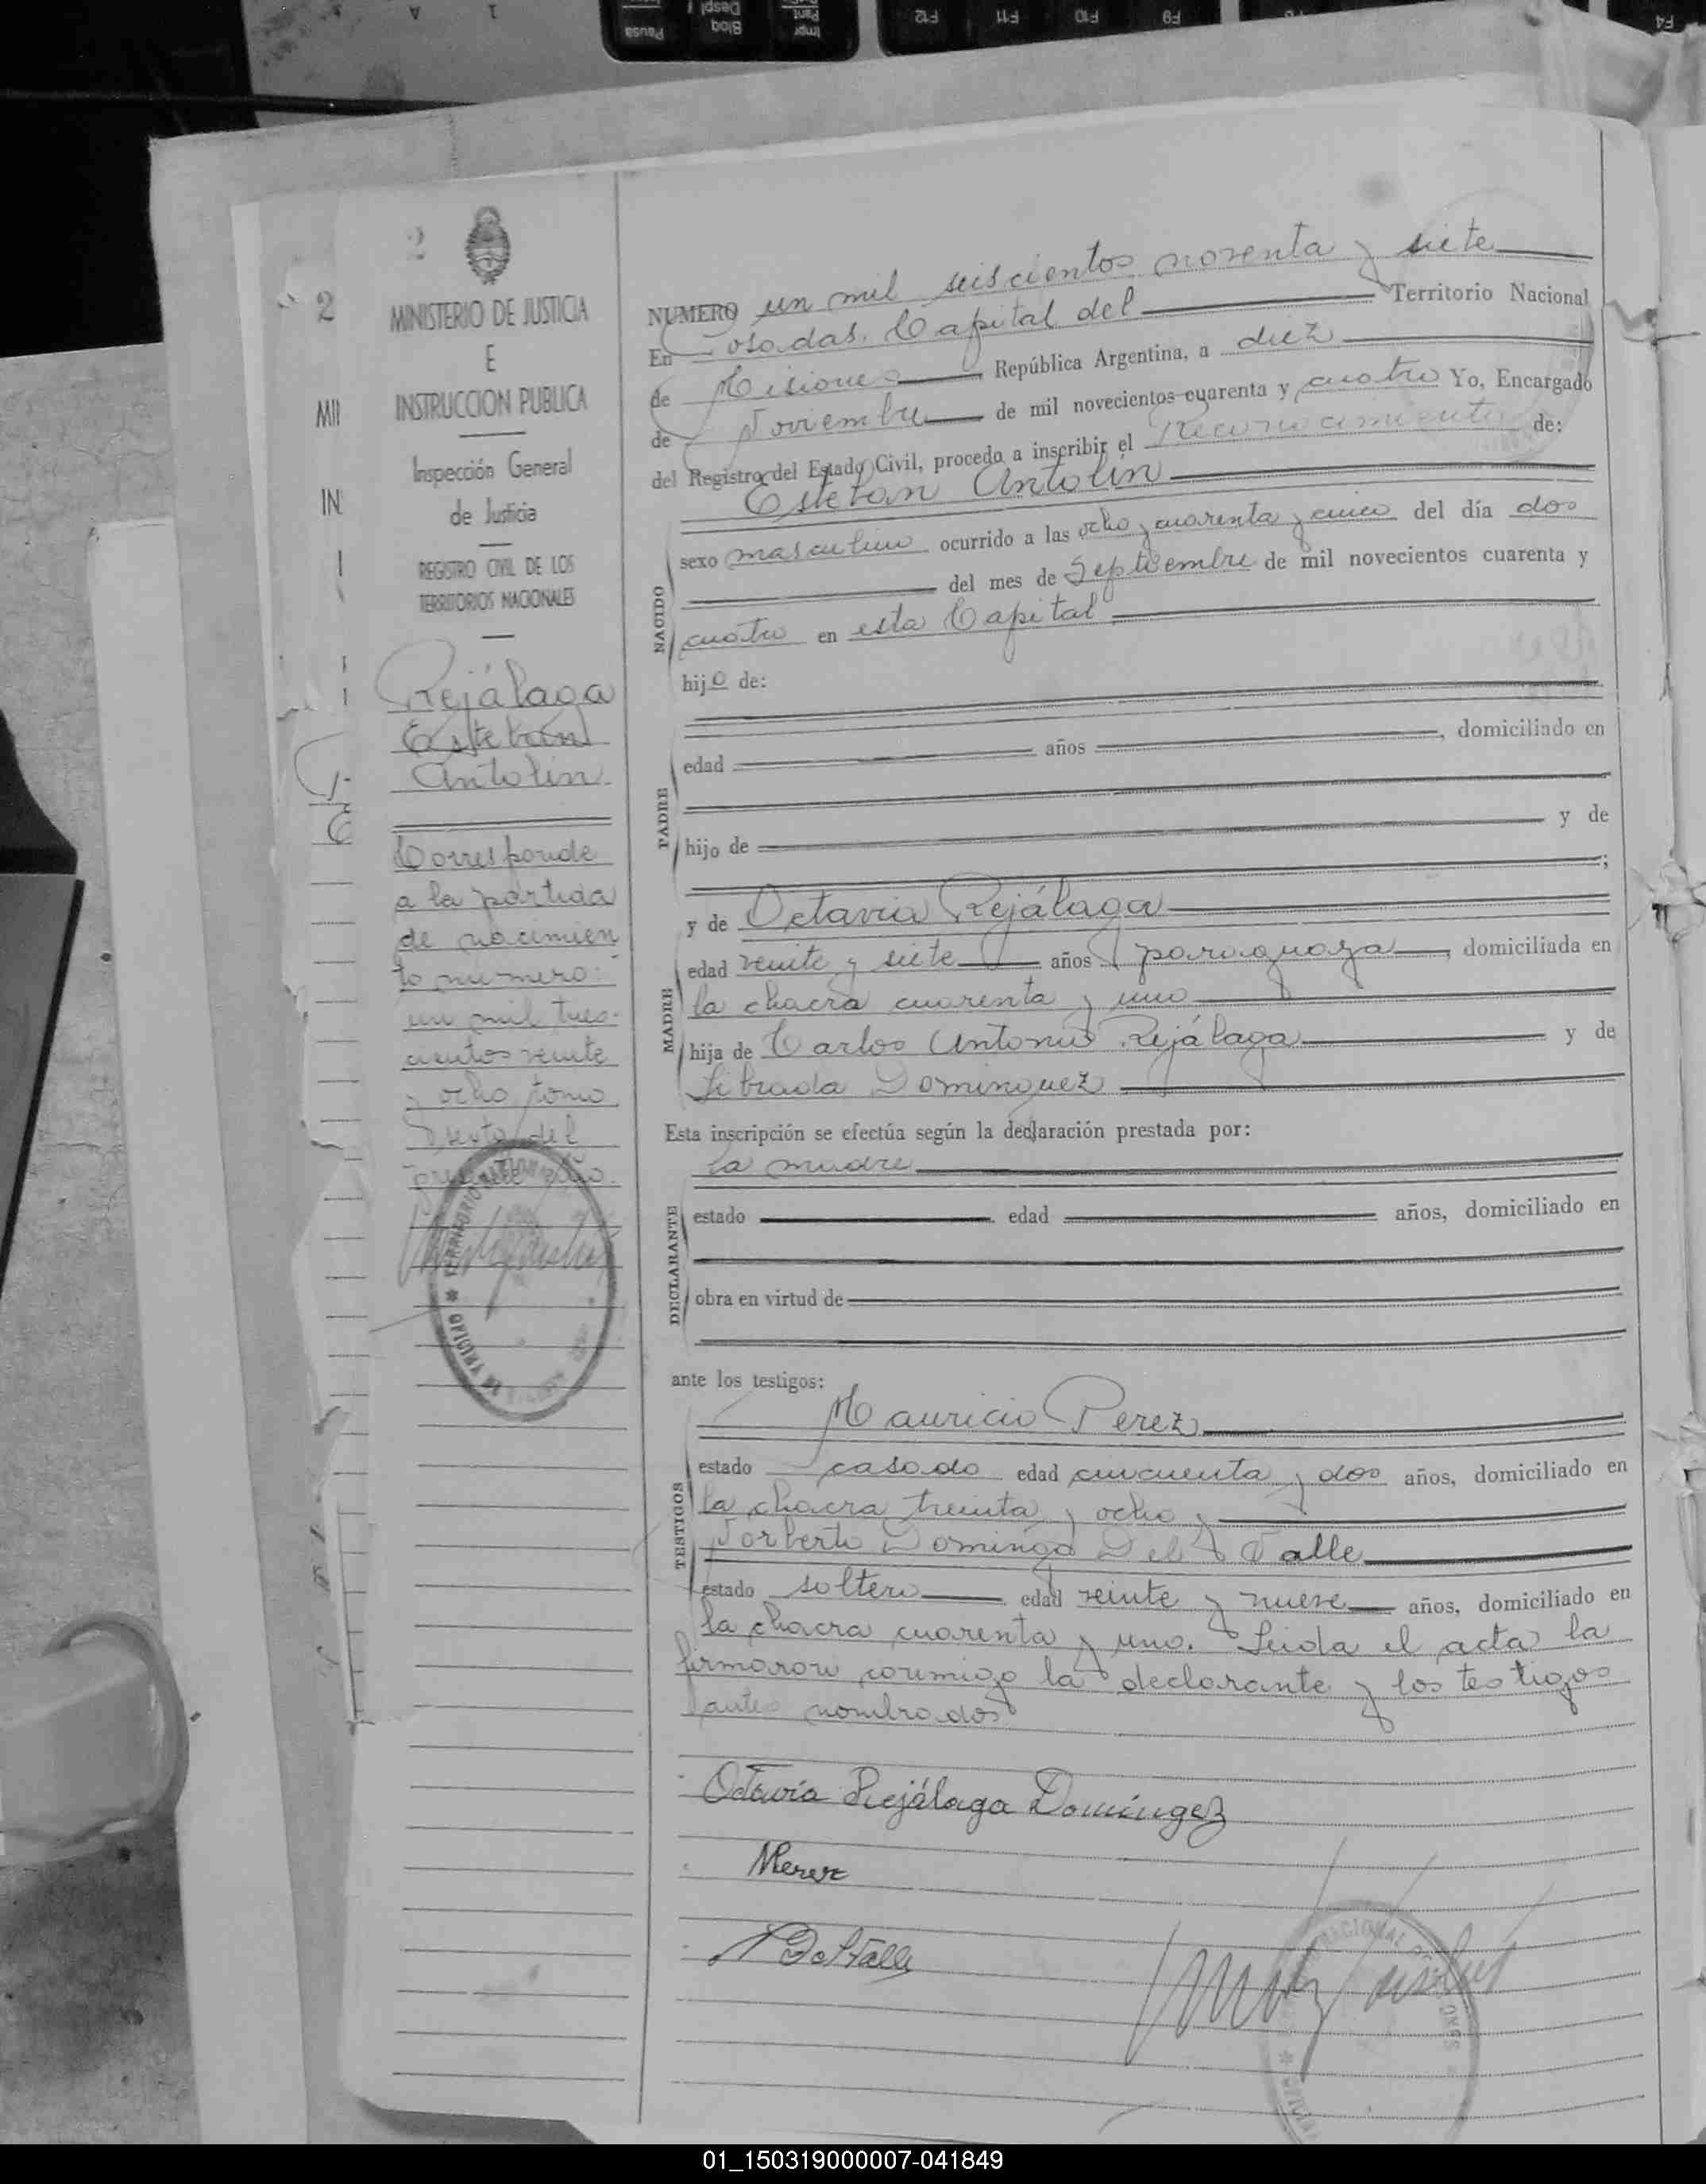 2
MINISTERIO DE JUSTICIA
E
INSTRUCCION PUBLICA
Inspección General
de Justicia
REGISTRO CIVIL DE LOS
TERRITORIOS NACIONALES
Rejálaga
Esteban
Antolin
Corresponde
a la partida
de nacimien
to numero:
un mil tres-
cientos veinte
y ocho tomo
sexto del
presente año.
NUMERO un mil seiscientos noventa y siete
En Posadas, Capital del Territorio Nacional
de Misiones República Argentina, a diez
de Noviembre de mil novecientos cuarenta y cuatro Yo, Encargado
del Registro del Estado Civil, procedo a inscribir el Reconocimiento de:
Esteban Antolin
NACIDO
sexo masculino ocurrido a las ocho y cuarenta y cinco del día dos
del mes de Septiembre de mil novecientos cuarenta y
cuatro en esta Capital
hijo de:
PADRE
edad años , domiciliado en
hijo de y de
;
MADRE
y de Octavia Rejálaga
edad veinte y siete años paraguaya , domiciliada en
la chacra cuarenta y uno
hija de Carlos Antonio Rejálaga y de
Librada Dominguez
Esta inscripción se efectúa según la declaración prestada por:
la madre
DECLARANTE
estado edad años, domiciliado en
obra en virtud de
ante los testigos:
Mauricio Perez
TESTIGOS
estado casado edad cincuenta y dos años, domiciliado en
la chacra treinta y ocho y
Norberto Domingo Del Valle
estado soltero edad veinte y nueve años, domiciliado en
la chacra cuarenta y uno. Leida el acta la
firmaron conmigo la declarante y los testigos
antes nombrados
Octavia Rejálaga Domíngez
MPerez
NDelValle
01_150319000007-041849